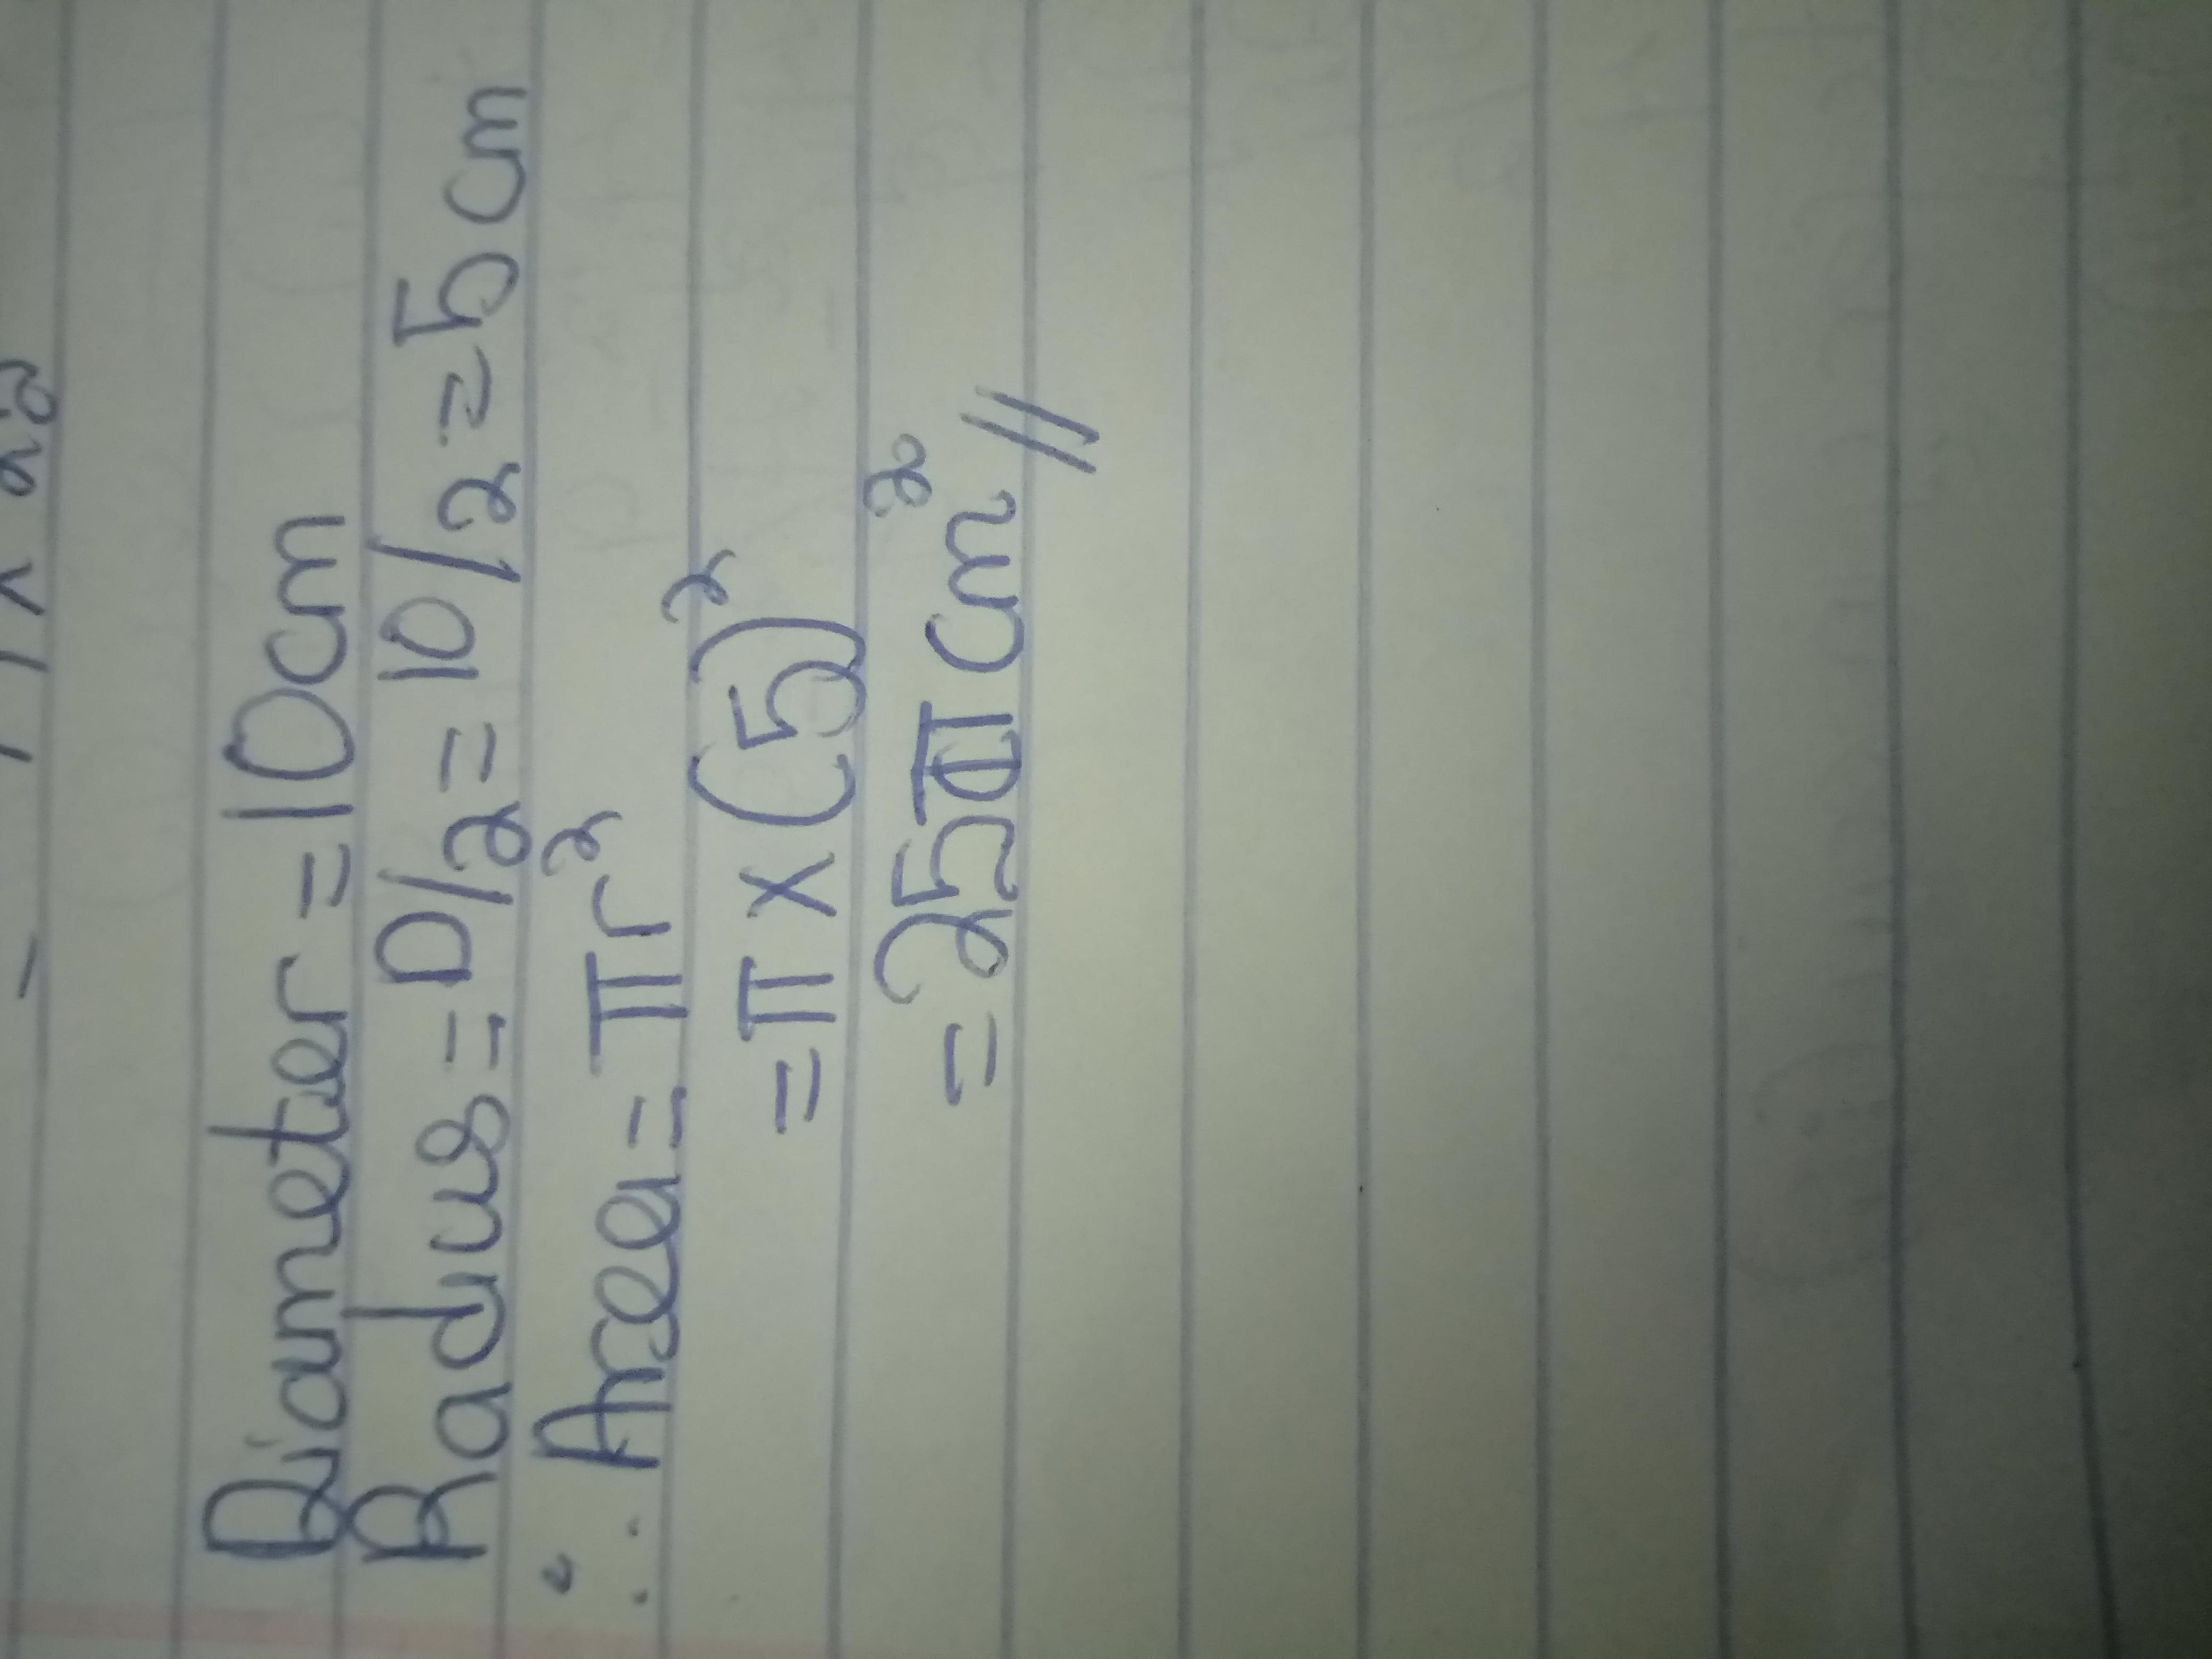 Diameter = 10cm
Radius = D/2 = 10/2 = 5 cm
∴ Area = πr²
= π × (5)²
= 25π cm² //